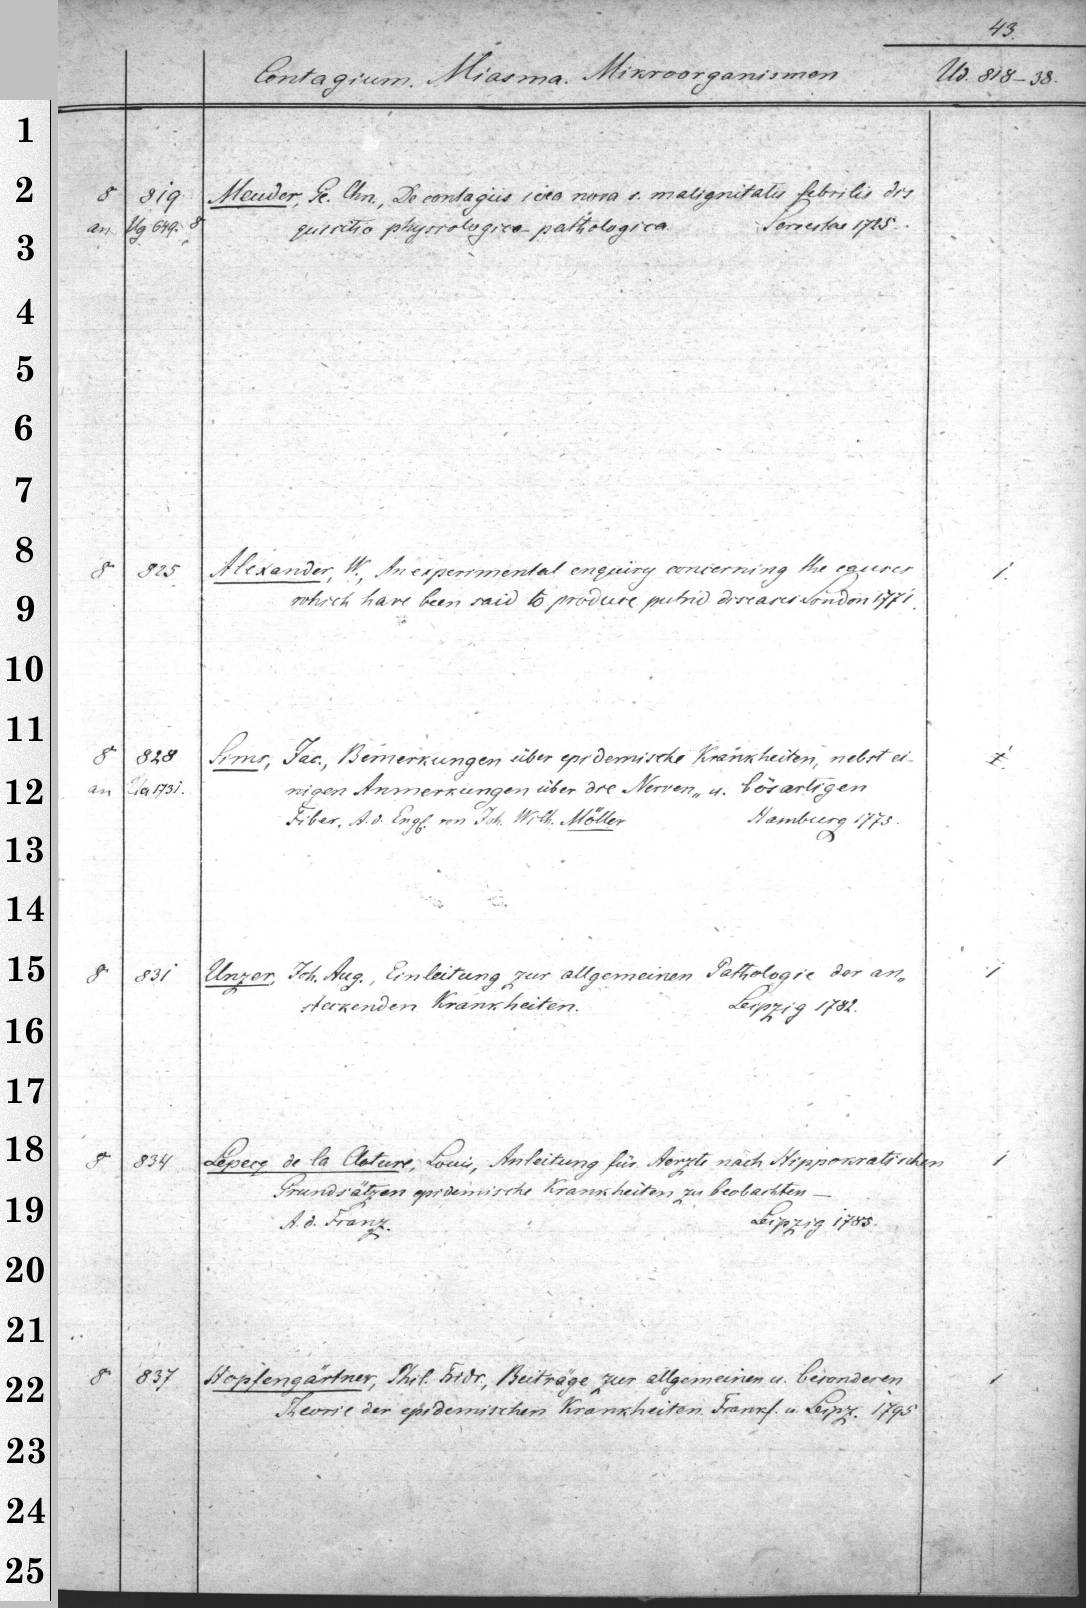 43.
Contagium. Miasma. Mikroorganismen
Ud. 818-38.
1
2
3
4
5
6
7
8
9
10
11
12
13
14
15
16
17
18
19
20
21
22
23
24
25
8 819 Meuder, Ge. Chn., De contagiis idea nova s. malignitatis febrilis dis
an Ug 649. 8 quisitio physiologico-pathologica Servestae 1725.
8 825 Alexander, W., An experimental enquiry concerning the causes 1.
which have been said to produce putrid diseases London 1771.
8 828 Sims, Jac., Bemerkungen über epidemische Krankheiten, nebst ei-
an 1731. nigen Anmerkungen über die Nerven„ u. bösartigen
Fiber. A. d. Engl. von Joh. Wilh. Möller Hamburg 1775.
8 831 Unzer, Joh. Aug., Einleitung zur allgemeinen Pathologie der an„ 1
steckenden Krankheiten. Leipzig 1782.
8 834 Lepecq de la Cloture, Louis, Anleitung für Aerzte nach Hippokratischen 1
Grundsätzen epidemische Krankheiten zu beobachten —
A. d. Franz. Leipzig 1785.
8 837 Hopfengärtner, Phil. Fridr., Beiträge zur allgemeinen u. besonderen 1
Theorie der epidemischen Krankheiten. Frankf. u. Leipz. 1795